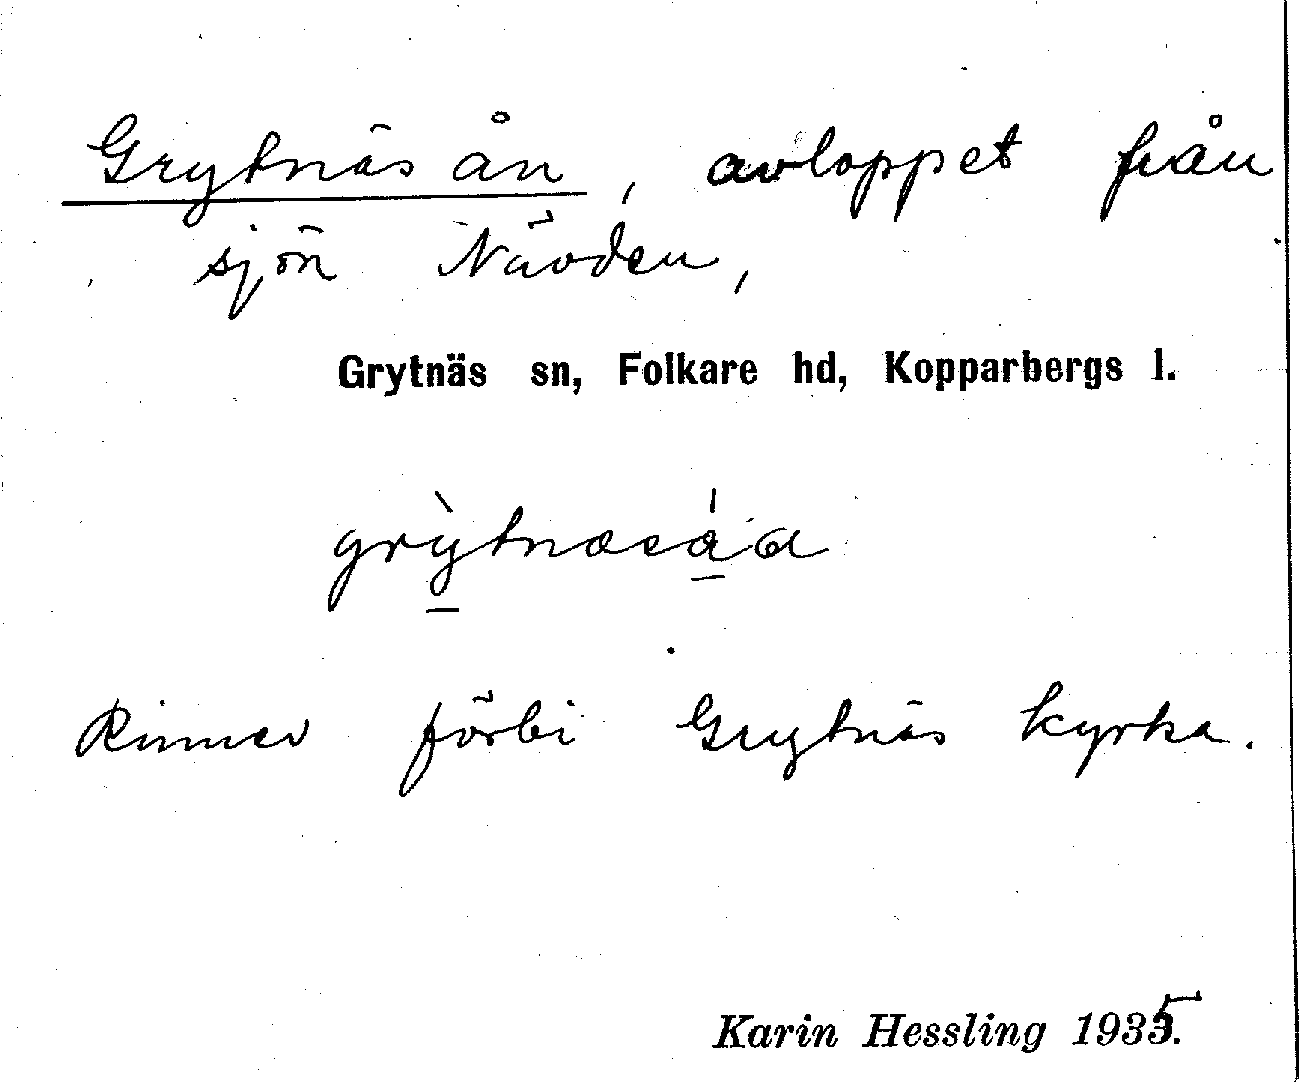 Grytnäsån, avloppet från
sjön Nävden,
Grytnäs sn, Folkare hd, Kopparbergs l.
Rinner förbi Grytnäs kyrka.
Karin Hessling 1935.